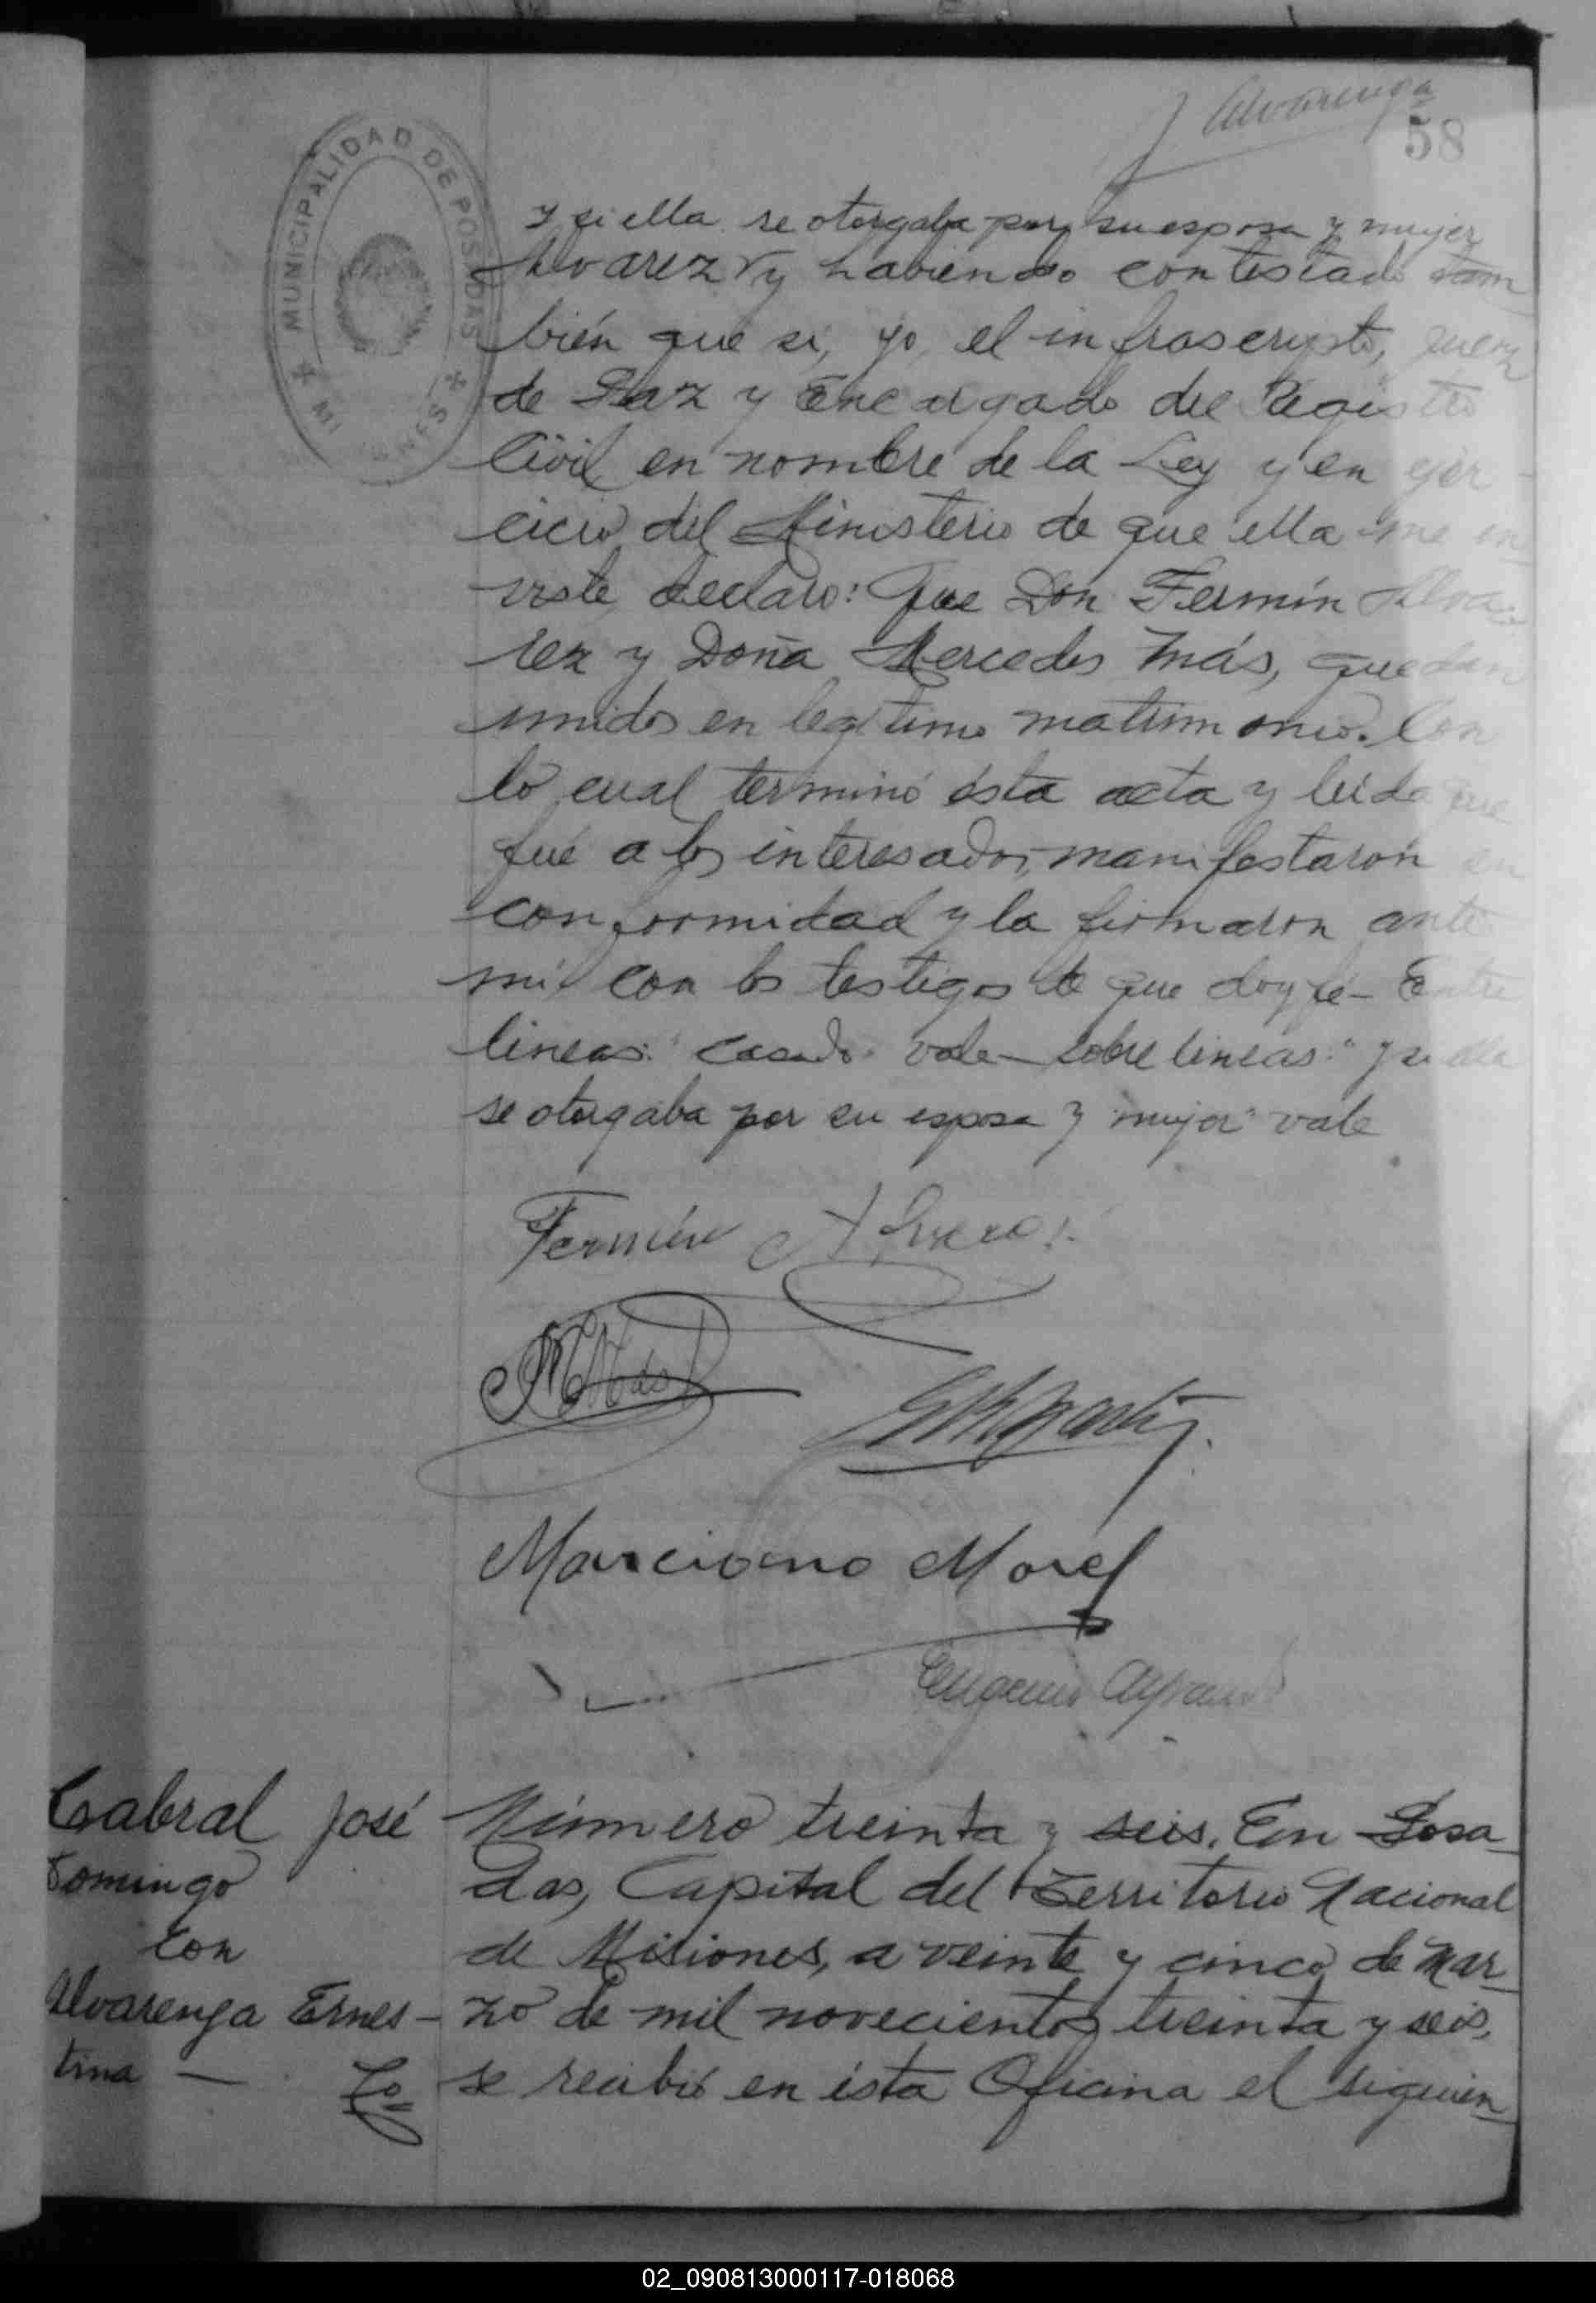 Alvarenga
58
MUNICIPALIDAD DE POSADAS
y si ella se otorgaba por su esposa y mujer
Alvarez y haviendo contestado tam
bién que si, yo, el infrascripto, Juez
de Paz y Encargado del Registro
Civil, en nombre de la Ley y en ejer-
cicio del Ministerio de que ella me in
viste, declaro: Que Don Fermín Alva-
rez y Doña Mercedes Más, quedan
unidos en legítimo matrimonio. Con
lo cual terminó ésta acta y leida que
fué a los interesados, manifestarón su
conformidad y la firmaron ante
mi con los testigos de que doy fé - Entre
lineas: "casado" vale - sobre lineas: "y si ella
se otorgaba por su esposa y mujer" vale
Fermín Alvarez
M Más
Marciano Morel
Eugenio
Cabral José
Domingo
con
Alvarenga Ernes-
tina —
Número treinta y seis. En Posa
das, Capital del Territorio Nacional
de Misiones, a veinte y cinco de Mar-
zo de mil novecientos treinta y seis,
se recibió en ésta Oficina el siguien
02_090813000117-018068